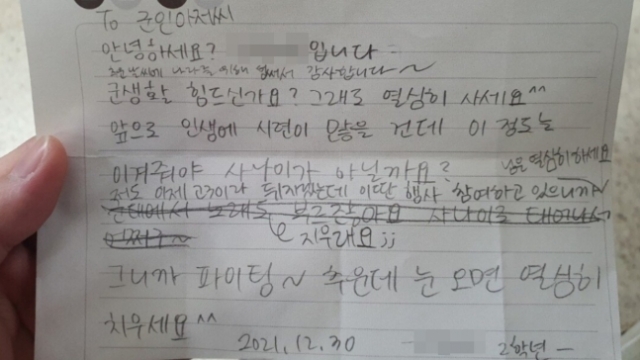 To 군인아저씨
안녕하세요? 입니다
추운 날씨에 나라를 위해 힘써서 감사합니다~
군생활 힘드신가요? 그래도 열심히 사세요^^
앞으로 인생에 시련이 많을 건데 이 정도는
이겨줘야 사나이가 아닐까요?
저도 이제 고3이라 뒤지겠는데 이딴 행사 참여하고 있으니까~
눈을 열심히하세요
군대에서 노래도 부르 사나이로 태어나서
어쩌구~
지우래요;;
그니까 파이팅~ 추운데 눈 오면 열심히
치우세요^^
2021.12.30 2학년 -